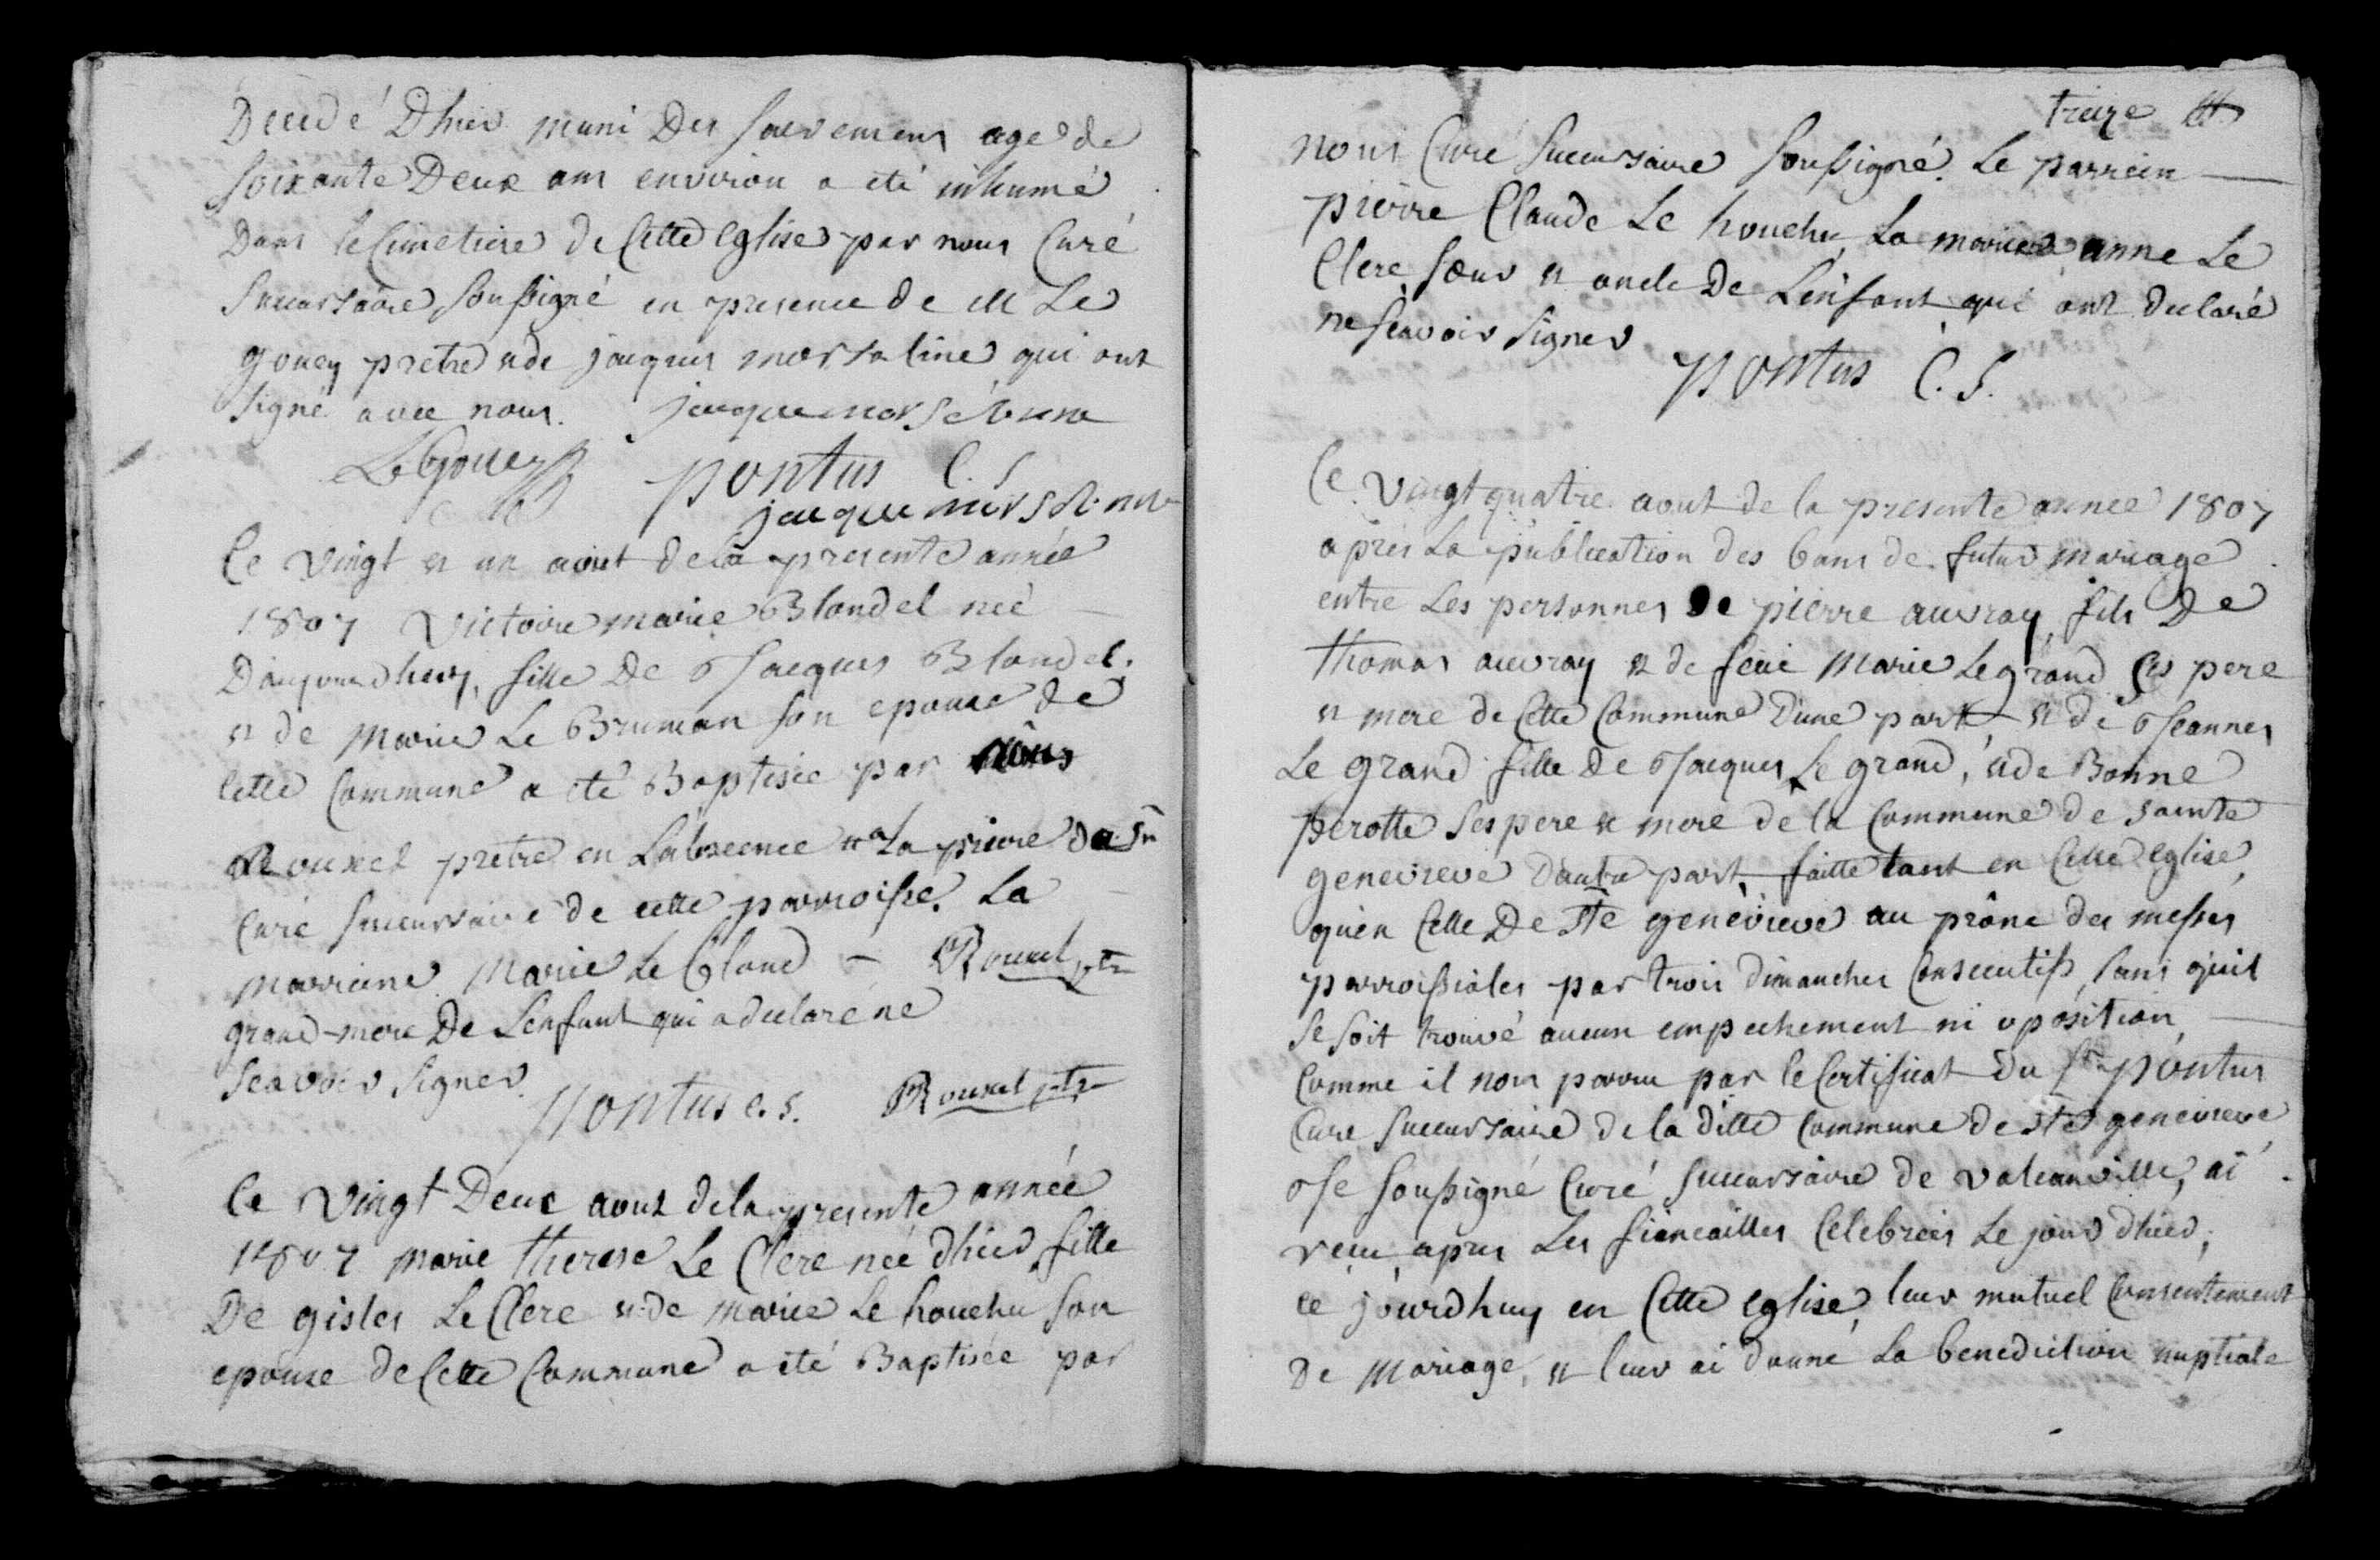 Decedé Dhier muni Des sacremens agé de
soixante Deux ans environ a eté inhumé
Dans le Cimetiere de Cette Eglise par nous Curé
succursaire soussigné en presence de M Le
gouey pretre & de jacques morsaline qui ont
signé avec nous. jacque morsaline
LeGouey pontus C. S
jacque morsaline
Ce vingt et un aout de la presente année
1807 Victoire marie Blondel neé
Daujourdhuy, fille De Jacques Blondel.
et de Marie Le Bruman son epouse de
Cette Commune a eté Baptisée par nous
Rouxel pretre en Labscence et a La priere du Sr
Curé succursaire de cette parroisse. La
marreine Marie Le Blond – Rouxel ptr
grand-mere De Lenfant qui a declaré ne
scavoir signer.
pontus c. s. Rouxel ptr
Ce vingt Deux aout de la presente année
1807 marie therese Le Clerc neé dhier fille
De gisles Le Clerc et de marie Le houehu son
epouse de Cette Commune a eté Baptisée par
treize
nous Curé succursaire soussigné. Le parrein
pierre Claude Le houehu, La mareine anne Le
Clerc sœur et oncle De Lenfant qui ont declaré
ne scavoir signer
pontus C. S.
Ce vingt quatre aout de la presente année 1807
apres La publication des bans de futur mariage
entre Les personnes De pierre auvray fils De
thomas auvray et de feüe Marie Legrand ses pere
et mere de Cette Commune D'une part, et de Jeannes
Le grand fille de Jacques Le grand, et de Bonne
perotte ses pere et mere de la Commune de sainte
genevieve D'autre part, faitte tant en Cette eglise,
qu'en Celle De Ste genevieve au prône des messes
parroissiales par trois dimanches Consecutifs, sans qu'il
se soit trouvé aucun empechement ni oposition
Comme il nous parru par le Certificat du Sr pontus
Curé succursaire de la ditte Commune de Ste genevieve
Je soussigné Curé succursaire de valcanville, ai
recu apres Les fiancailles Celebrées Le jour d'hier,
ce jourdhuy en Cette eglise, leur mutuel Consentement
De Mariage, et leur ai donné La benediction nuptiale